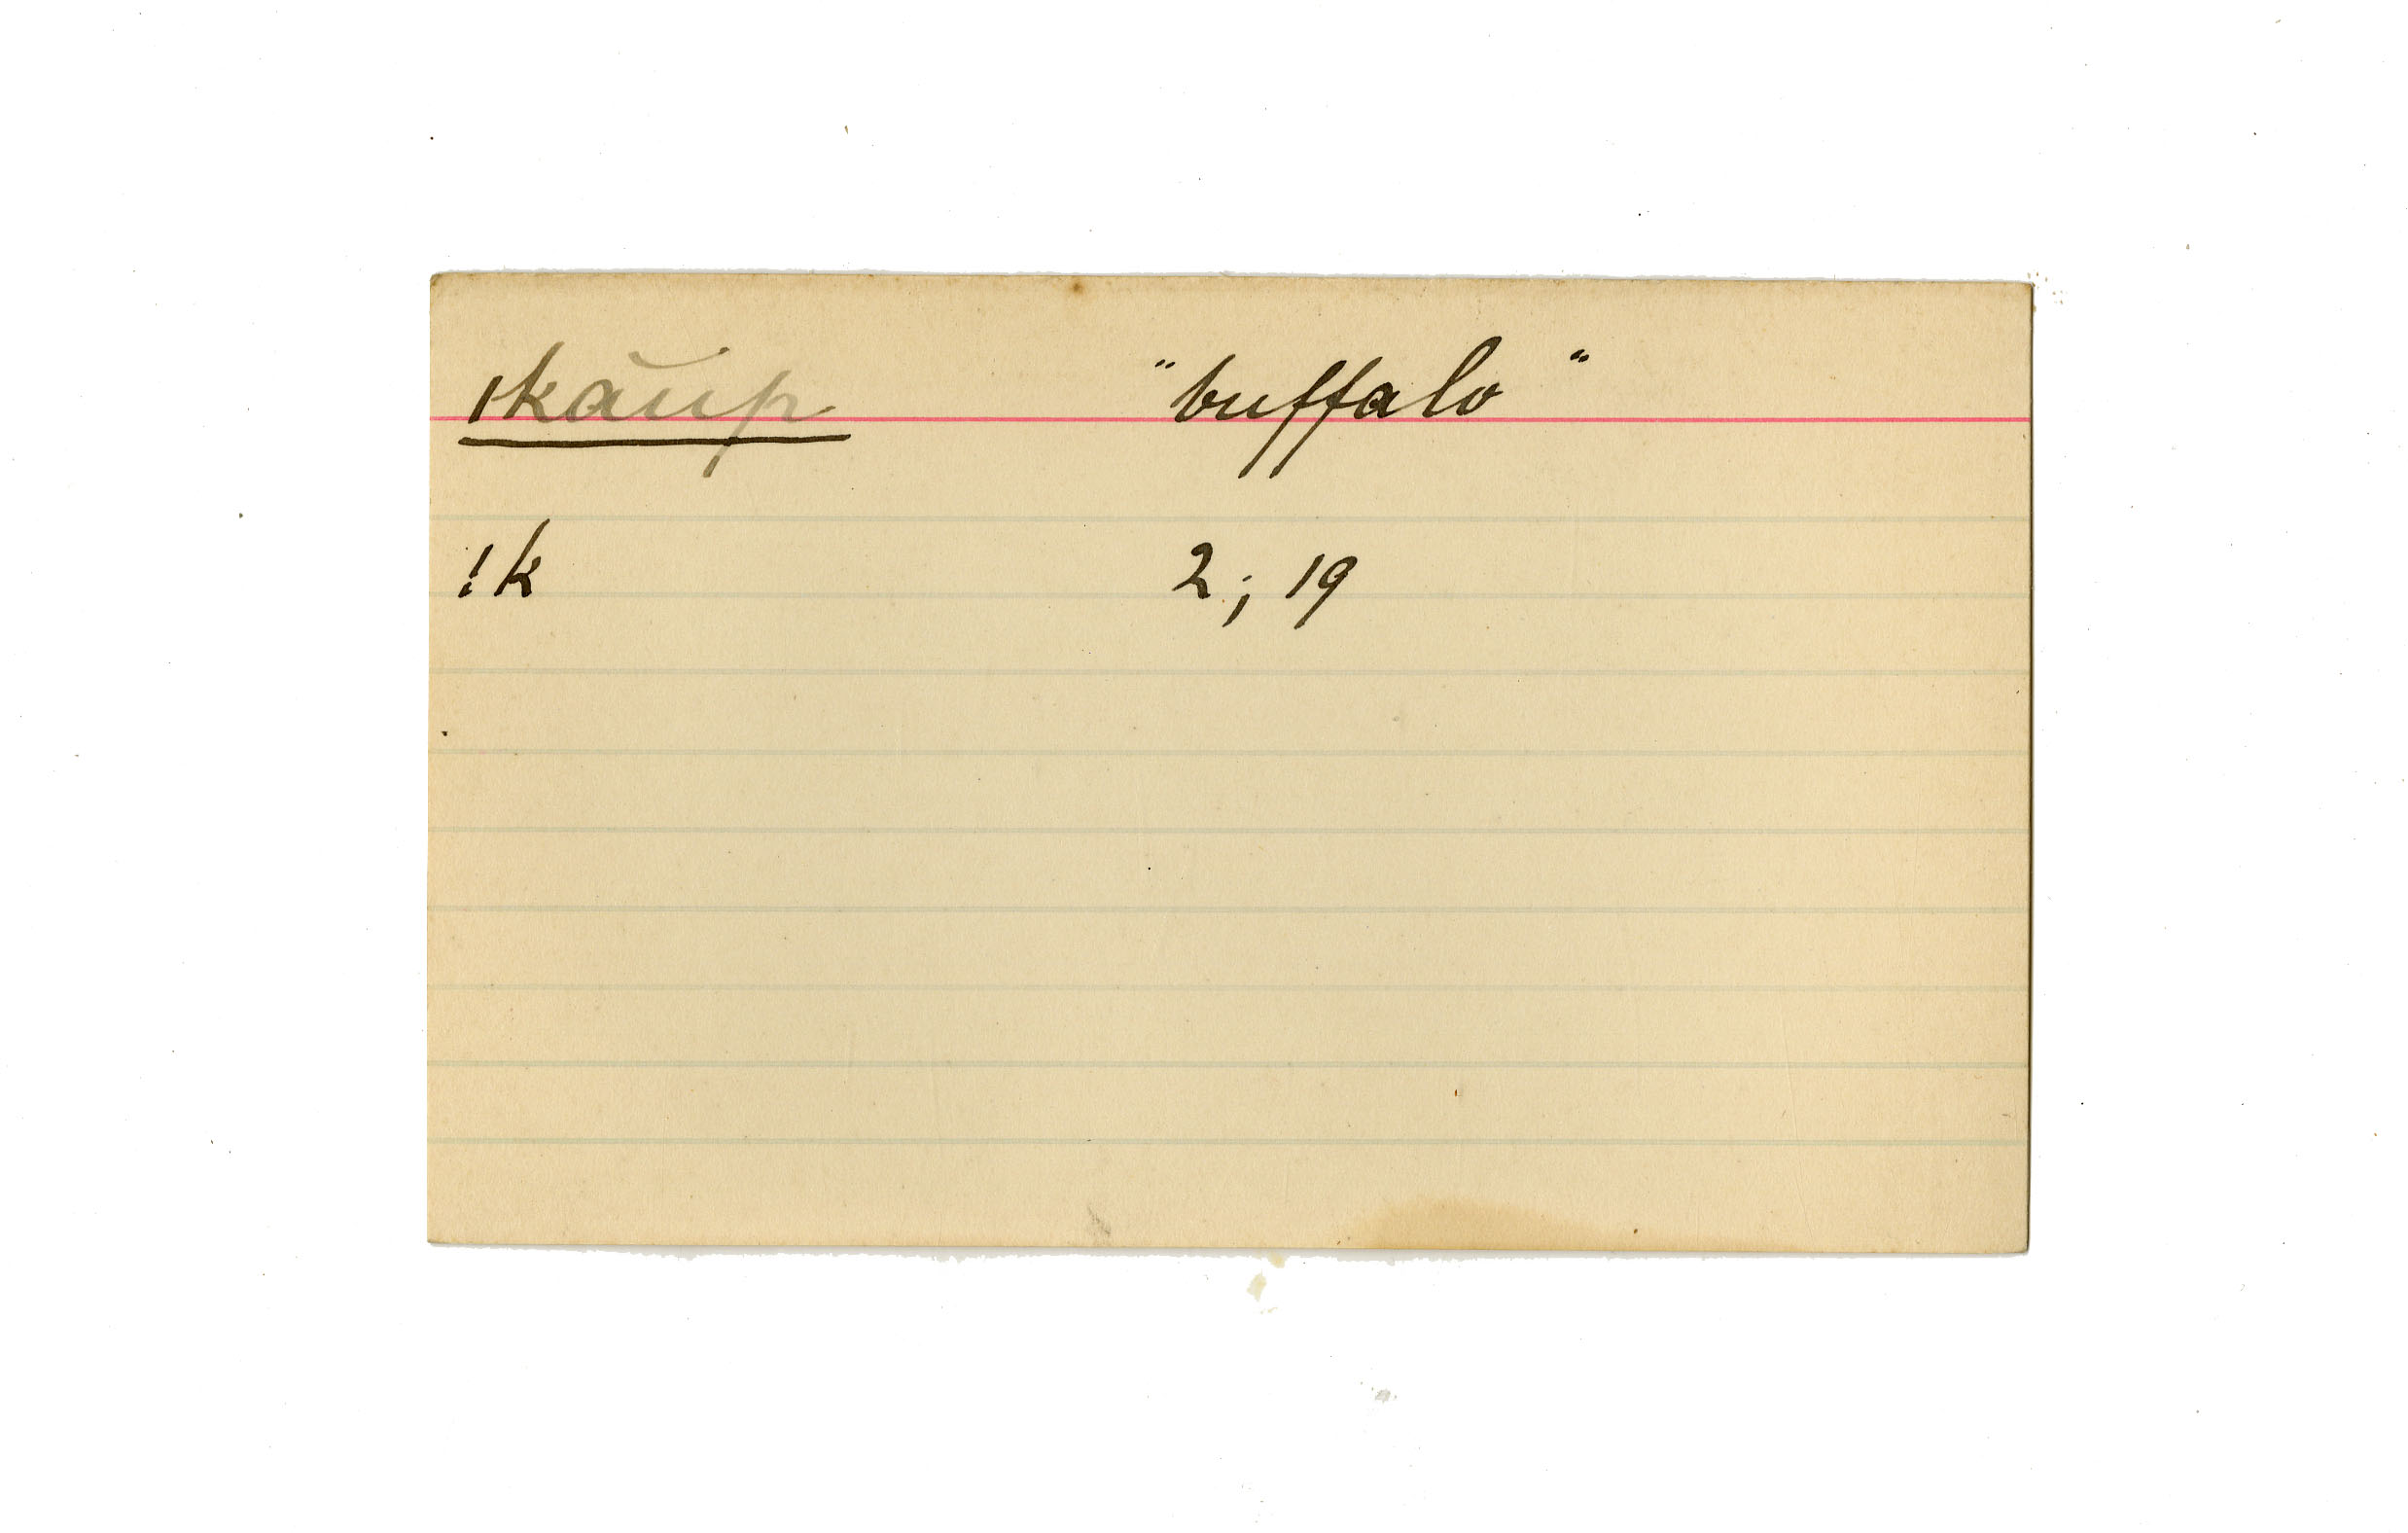 ǀkăup "buffalo"
!k 2; 19